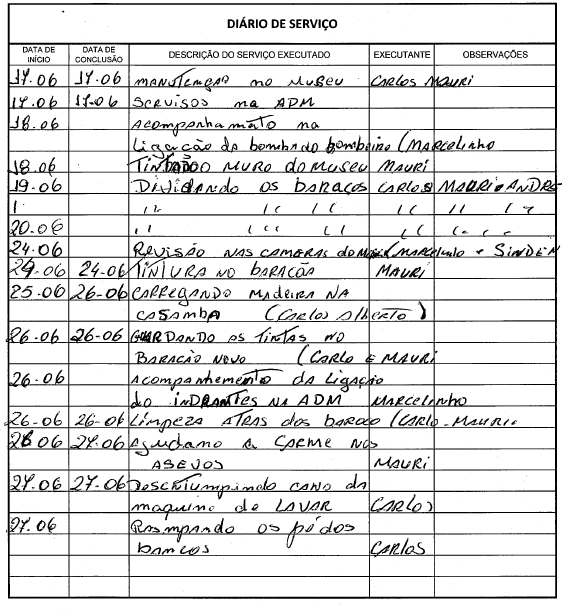 DIÁRIO DE SERVIÇO
DATA DE INÍCIO DATA DE CONCLUSÃO DESCRIÇÃO DO SERVIÇO EXECUTADO EXECUTANTE OBSERVAÇÕES
17.06 17.06 MANUTENÇAO no MUSEU CARLOS MAURI
17.06 17.06 SERVISOS na ADM
18.06 Acompanhamato na
Ligação da bombado bombeiro (MARCelinho
18.06 TINTADO MURO do MUSEU MAURI
19.06 DIVIDANDO OS BARACOS CARLOS MAURI ANDRE
20.06
24.06 REVISÃO NAS CAMERAS do (MARCELINHO e SINDEN
24.06 24.06 TINTURA NO BARACOA MAURI
25.06 26-06 CARREGANDO MADEIRA NA
CASAMBA (CARLOS Alberto)
26.06 26-06 GUARDANDO AS TINTAS NO
BARACÃO NOVO (CARLO E MAURI
26.06 Acompanhemento da Ligação
do INDRANTES NA ADM MARCELINHO
26-06 26-06 Limpeza ATRAS dos baraco (CARLO-MAURI
26.06 27.06 Ajudamo a CARME NOS
ASEVOS MAURI
27.06 27-06 Descntumpindo cano da
maquina de LAVAR CARLOS
27.06 Rasmpando os pé dos
bancos CARLOS